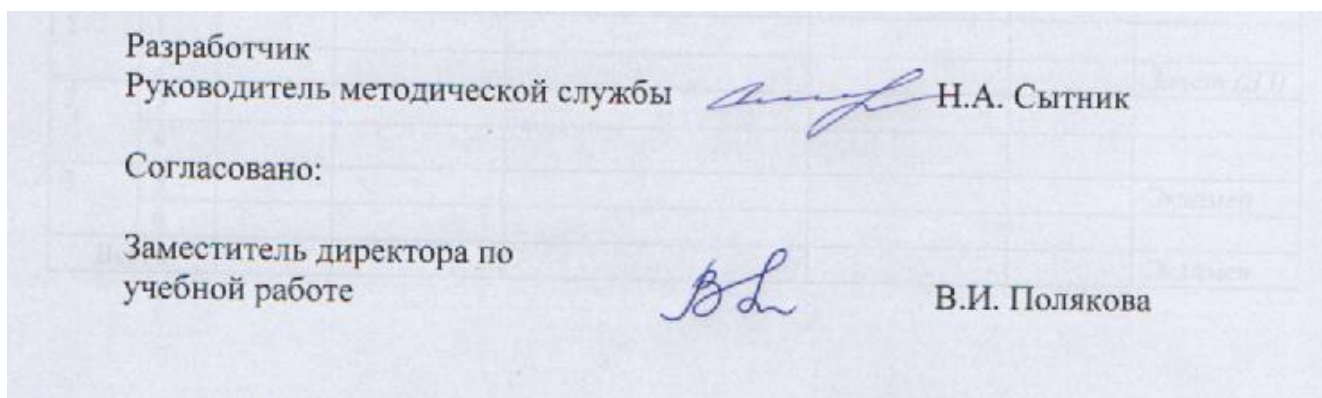 Разработчик
Руководитель методической службы Н.А. Сытник
Согласовано:
Заместитель директора по
учебной работе В.И. Полякова